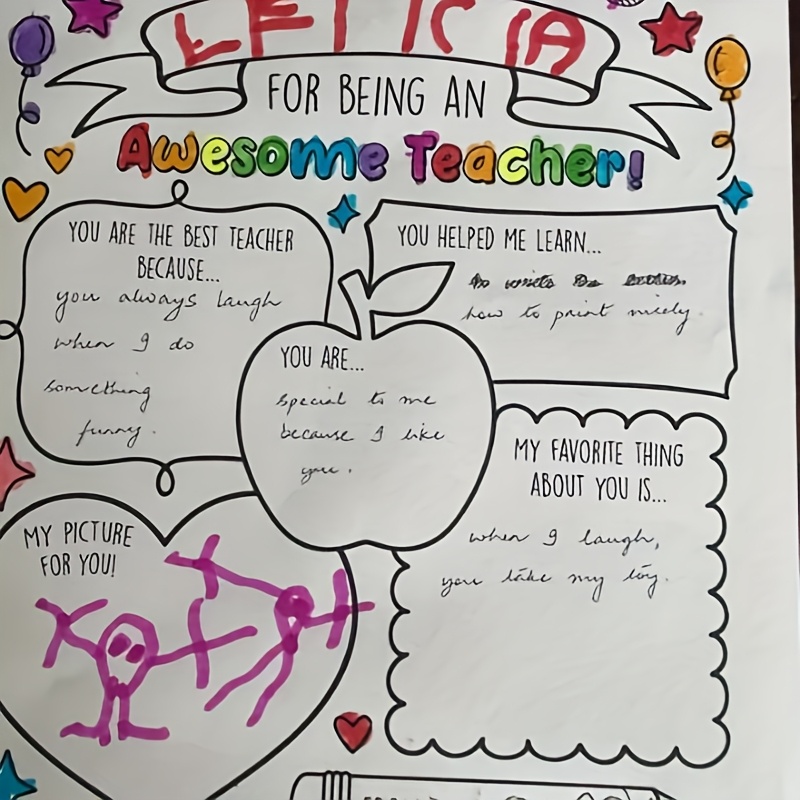 LETICIA
FOR BEING AN
Awesome Teacher!
YOU ARE THE BEST TEACHER
BECAUSE...
you always laugh
when I do
something
funny.
YOU HELPED ME LEARN...
how to paint nicely.
YOU ARE...
special to me
because I like
you.
MY FAVORITE THING
ABOUT YOU IS...
when I laugh,
you take my toy.
MY PICTURE
FOR YOU!